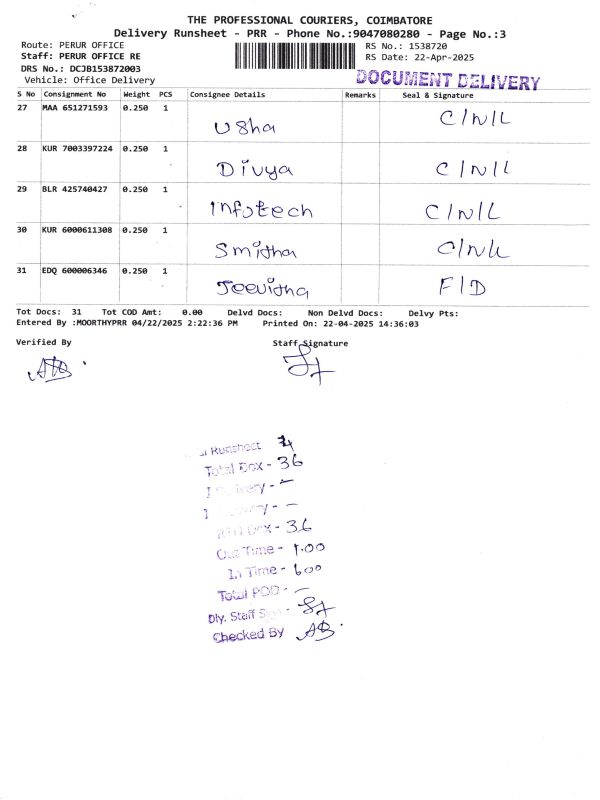 THE PROFESSIONAL COURIERS, COIMBATORE
Delivery Runsheet - PRR - Phone No.:9047080280 - Page No.:3
Route: PERUR OFFICE RS No.: 1538720
Staff: PERUR OFFICE RE RS Date: 22-Apr-2025
DRS No.: DCJB153872003
Vehicle: Office Delivery DOCUMENT DELIVERY
S No Consignment No Weight PCS Consignee Details Remarks Seal & Signature
27 MAA 651271593 0.250 1 Usha C/N/L
28 KUR 7003397224 0.250 1 Divya C/N/L
29 BLR 425740427 0.250 1 Infotech C/N/L
30 KUR 6000611308 0.250 1 Smitha C/N/L
31 EDQ 600006346 0.250 1 Jeevitha F/D
Tot Docs: 31 Tot COD Amt: 0.00 Delvd Docs: Non Delvd Docs: Delvy Pts:
Entered By :MOORTHYPRR 04/22/2025 2:22:36 PM Printed On: 22-04-2025 14:36:03
Verified By Staff Signature
Runsheet
Total Dox - 36
Dox - 36
Out Time - 1.00
In Time - 600
Total POD - -
Dly. Staff Sign -
Checked By